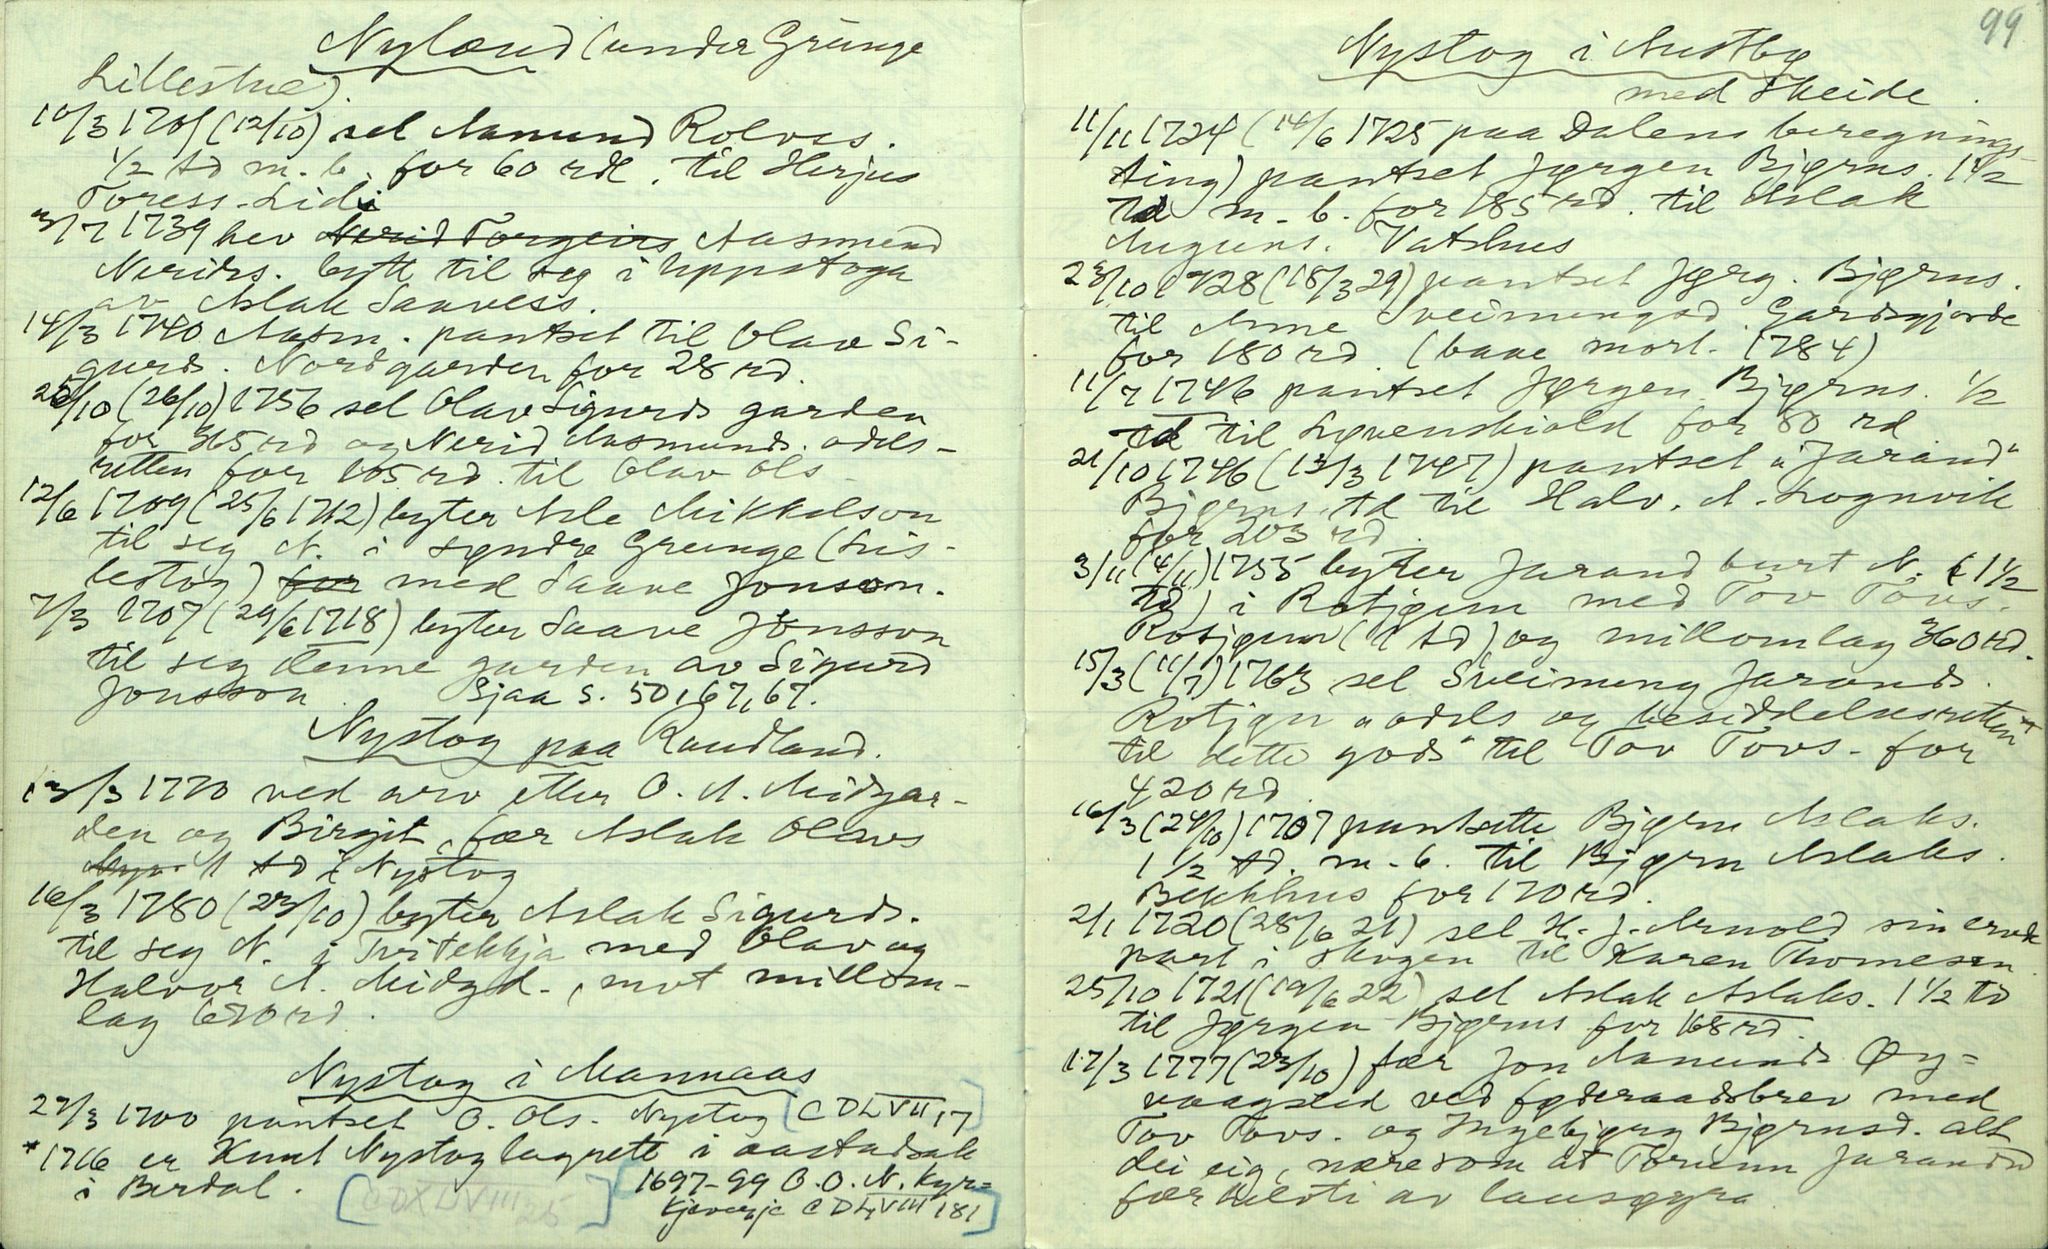 Nyland (under Grunge
Lillestue).
10/3 1701 (12/10) sel Aamund Rolvs.
1/2 td m. b. for 60 rdl. til Herjus
Toress. Lidi
3/7 1739 hev Nerid Torgeirs Aasmund
Nerids. bytt til seg i Uppstoga
av Aslak Saavess.
14/3 1740 Aasm. pantset til Olav Si-
gurds. Nordgarden for 28 rd.
25/10 (26/10) 1756 sel Olav Sigurds garden
for 365 rd og Nerid Aasmunds. odels-
retten for 105 rd. til Olav Ols
12/6 1709 (25/6 1712) byter Asle Mikkelson
til seg N. i syndre Grunge (Lis-
lestog) for med Saave Jonson.
7/3 1707 (29/6 1718) byter Saave Jonsson
til seg denne garden av Sigurd
Jonsson. Sjaa s. 50, 67, 67.
Nystog paa Raudland.
13/3 1770 ved arv etter O. A. Midgar-
den og Birgit, fær Aslak Olavs
1 td i Nystog
16/3 1780 (23/10) byter Aslak Sigurds.
til seg N. i Tvitekkja med Olav og
Halvor A. Midgd., mot millom-
lag 670 rd.
Nystog i Mannaas
27/3 1700 pantset O. Ols. Nystog [CDLVII 17]
* 1716 er Knut Nystog lagrett i aastadsak
i Berdal. [CDXLVIII 25] [1697-99 O. O. N. kyr-
kjeverje CDLVIII 181]
99
Nystog i Austby
med Skeide.
11/11 1724 (14/6 1725 paa Dalens beregnings-
ting) pantset Jørgen Bjørns. 1 1/2
td m. b. for 185 rd. til Aslak
Auguns. Vatshus
23/10 1728 (18/3 29) pantset Jørg. Bjørns.
til Arne Sveinungsd. Gardsgjorde
for 180 rd. (baae mort. 1784)
11/7 1746 pantset Jørgen Bjørns. 1/2
td til Løvenskiold for 80 rd.
21/10 1746 (13/3 1747) pantset "Jarand"
Bjørns. td til Halv. A. Lognvik
for 203 rd.
3/11 (4/11) 1755 byter Jarand burt N. (1 1/2
td) i Rotjørn med Tov Tovs.
Rotjørn (1 td) og millomlag 360 rd.
15/3 (11/7) 1763 sel Sveinung Jarands.
Rotjørn "odels og besiddelsesretten
til dette gods" til Tov Tovs. for
420 rd.
16/3 (24/10) 1707 pantsette Bjørn Aslaks.
1 1/2 td. m. b. til Bjørn Aslaks.
Bekkhus for 170 rd.
2/1 1720 (28/6 21) sel H. J. Arnold sin ervde
part i skogen til Karen Thomesen.
25/10 1721 (19/6 22) sel Aslak Aslaks. 1 1/2 td
til Jørgen Bjørns for 168 rd.
17/3 1777 (23/10) fær Jon Aamunds. Øy-
vaagsted ved føderaadsbrev med
Tov Tovs. og Ingebjørg Bjørnsd. alt
dei eig, nære som at Torunn Jarandsd
fær helvti av lausøyra